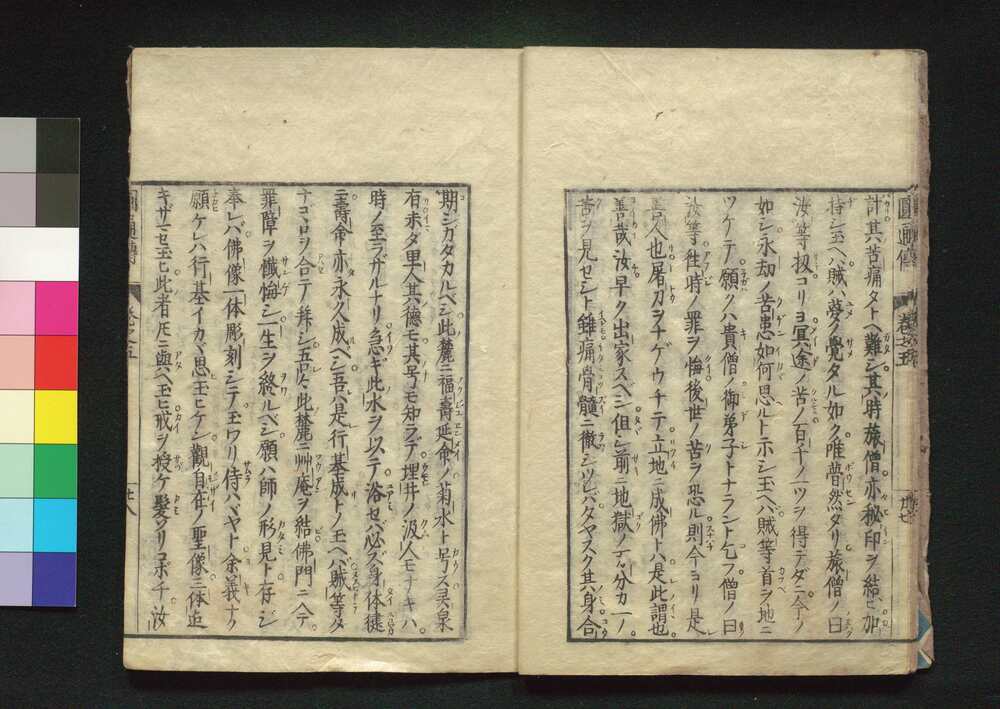 計其苦痛タトヘ難シ其時旅僧亦秘印ヲ結ヒ加
持シ玉ヘハ賊ハ夢ノ覺タル如ク唯瞢然タリ旅僧ノ曰
汝等扨コリヨ冥途ノ苦ノ百千ノ一ツヲ得テダニ今ノ
如シ永劫ノ苦患如何思ルト示シ玉ヘハ賊等首ヲ地ニ
ツケテ願クハ貴僧ノ御弟子トナラント乞フ僧ノ曰
汝等徃時ノ罪ヲ悔後世ノ苦ヲ恐ル則今ヨリ是
善人也屠力ヲナゲウチテ立地ニ成佛トハ是此謂也
善哉汝早ク出家スベシ但シ前ニ地獄ノ千分カ一ノ
苦ヲ見セシト雖痛骨髓ニ徹シツレバタヤスク其身合
圓通傳 卷之五 廿七
期シガタカルベシ此麓ニ福壽延命ノ菊水ト号ス灵泉
有未タ里人其德モ其号モ知ラデ埋井ノ汲人モナキハ
時ノ至ラザルナリ急ギ此水ヲ以テ浴セバ必ズ身体健
ニ壽命亦永久成ベシ吾ハ是行基成トノ玉ヘハ賊等タ
ナコヽロヲ合テ拜シ五

此麓ニ艸庵ヲ結佛門ニ入テ
罪障ヲ懺悔シ一生ヲ終ルベシ願ハ師ノ形見ト存シ
奉レハ佛像一体彫刻シテ玉ワリ侍ハバヤト余義ナク
願ケレハ行基イカヾ思玉ヒケン觀自在ノ聖像三体迠
キザマセ玉ヒ此者𪜈ニ與ヘ玉ヒ戒ヲ授ケ髮ソリコボチ汝
圓通傳 卷之五 廿八